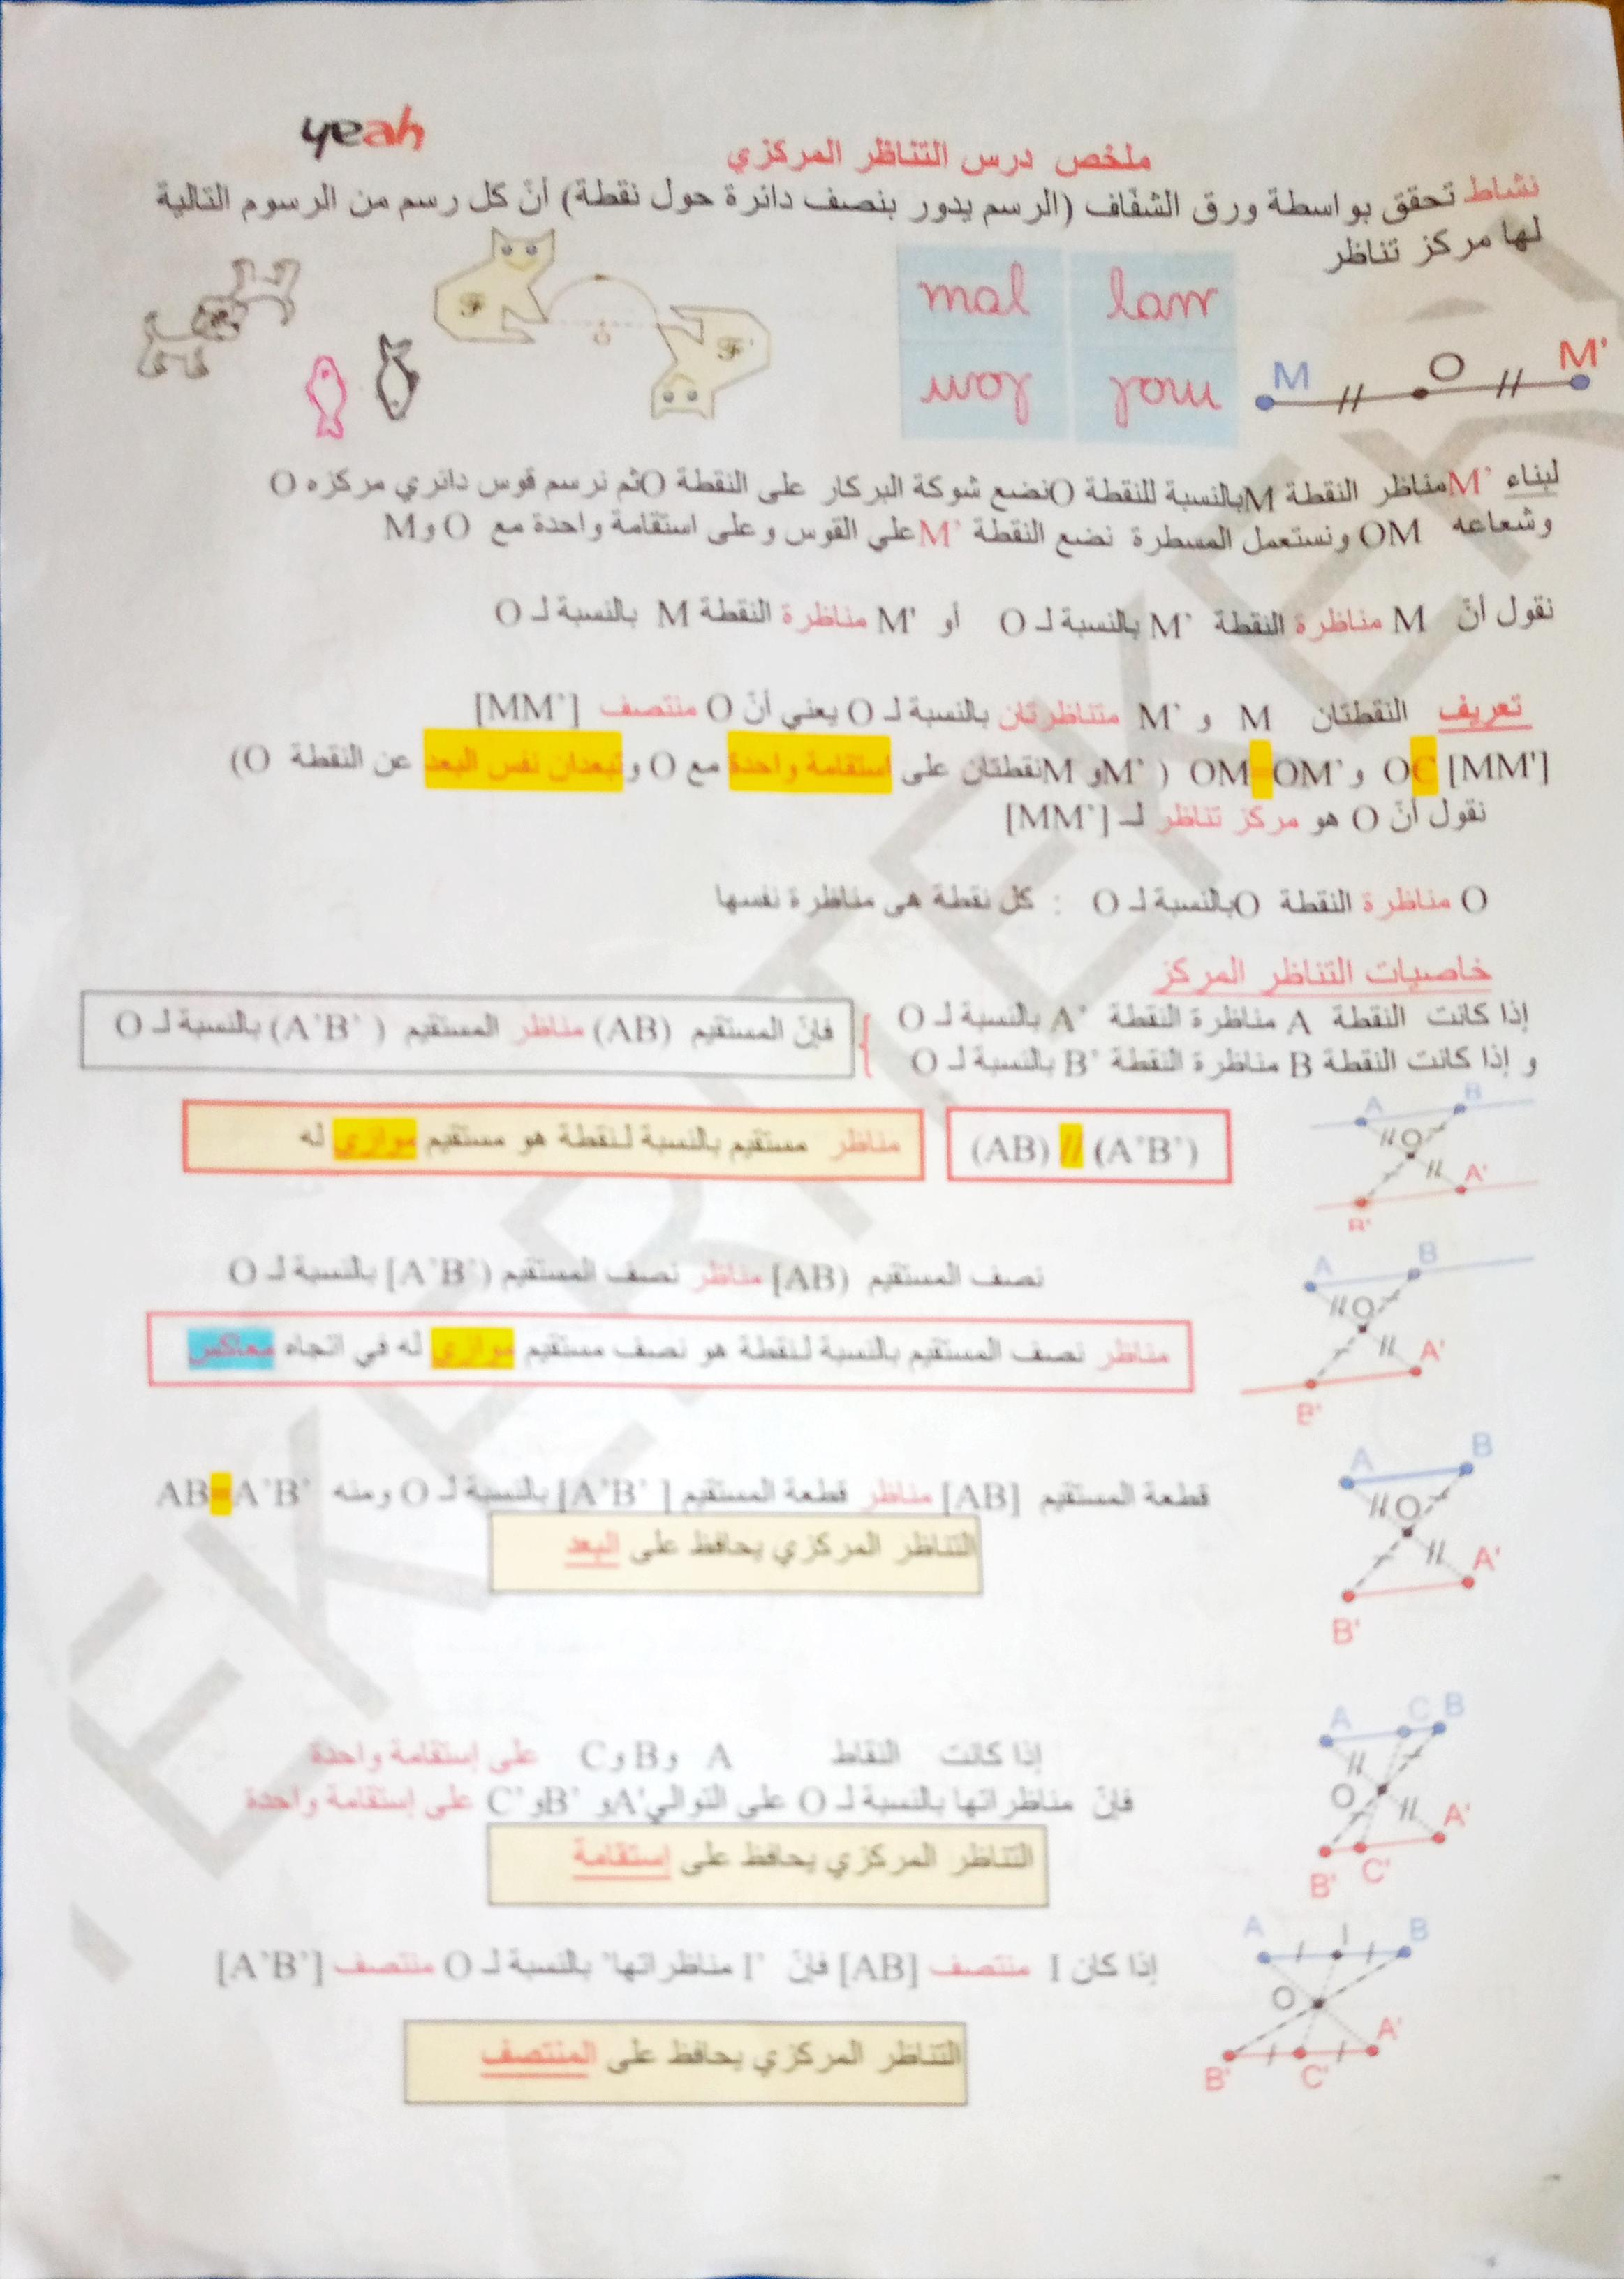 yeah
ملخص درس التناظر المركزي
نشاط تحقق بواسطة ورق الشفاف (الرسم يدور بنصف دائرة حول نقطة) أنّ كل رسم من الرسوم التالية
لها مركز تناظر
M O M'
لبناء M' مناظر النقطة M بالنسبة للنقطة O نضع شوكة البركار على النقطة O ثم نرسم قوس دائري مركزه O
وشعاعه OM ونستعمل المسطرة نضع النقطة M' علي القوس وعلى استقامة واحدة مع O و M
نقول أنّ M مناظرة النقطة M' بالنسبة لـ O أو M' مناظرة النقطة M بالنسبة لـ O
تعريف النقطتان M و M' متناظرتان بالنسبة لـ O يعني أنّ O منتصف [MM']
[MM'] O و OM=OM' ( M' و M نقطتان على استقامة واحدة مع O و تبعدان نفس البعد عن النقطة O)
نقول أنّ O هو مركز تناظر لـ [MM']
O مناظرة النقطة O بالنسبة لـ O : كل نقطة هي مناظرة نفسها
خاصيات التناظر المركز
إذا كانت النقطة A مناظرة النقطة A' بالنسبة لـ O
و إذا كانت النقطة B مناظرة النقطة B' بالنسبة لـ O
فإنّ المستقيم (AB) مناظر المستقيم (A'B') بالنسبة لـ O
(AB) // (A'B')
مناظر مستقيم بالنسبة لنقطة هو مستقيم موازي له
A B O A' B'
نصف المستقيم [AB) مناظر نصف المستقيم [A'B') بالنسبة لـ O
مناظر نصف المستقيم بالنسبة لنقطة هو نصف مستقيم موازي له في اتجاه معاكس
A B O A' B'
قطعة المستقيم [AB] مناظر قطعة المستقيم [A'B'] بالنسبة لـ O ومنه AB=A'B'
التناظر المركزي يحافظ على البعد
A B O A' B'
إذا كانت النقاط A و B و C على إستقامة واحدة
فإنّ مناظراتها بالنسبة لـ O على التوالي A' و B' و C' على إستقامة واحدة
التناظر المركزي يحافظ على إستقامة
A C B O A' B' C'
إذا كان I منتصف [AB] فإنّ I' مناظراتها" بالنسبة لـ O منتصف [A'B']
التناظر المركزي يحافظ على المنتصف
A I B O A' B' C'